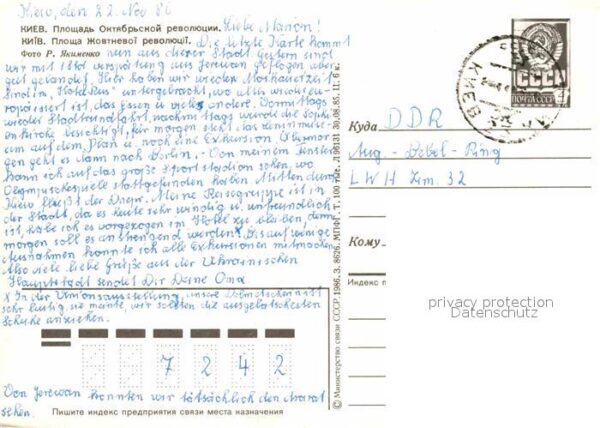 Kiew, den 22. Nov 86
КИЕВ. Площадь Октябрьской революции.
КИЇВ. Площа Жовтневої революції.
Фото Р. Якименко
Liebe Manon!
Die letzte Karte kommt
nun aus dieser Stadt. Gestern sind
wir mit 1 Std Verspätung aus Jerewan geflogen aber
gut gelandet. Hier haben wir wieder Moskauer Zeit
Sind im, Hotel Rus" untergebracht, wo alles
ist, das Essen u vieles andere. Vormittags
wieder Stadtrundfahrt, nachmittags wurde die Sophi-
enkirche besichtigt, für morgen steht
auf dem Plan u. noch eine Exkursion. Übermor-
gen geht es dann nach Berlin. Von meinem Fenster
kann ich auf das große Sportstadion sehen, wo
Olympiaspiele stattgefunden haben. Mitten durch
Kiew fließt der Dnepr. Meine Reisegruppe ist in
der Stadt, da es heute sehr windig u. unfreundlich
ist, habe ich es vorgezogen im Hotel zu bleiben, denn
morgen soll es anstrengend werden. Bis auf wenige
Ausnahmen konnte ich alle Exkursionen mitmachen
Also viele liebe Grüße aus der Ukrainischen
Hauptstadt sendet Dir Deine Oma
X In der Unionsausstellung, unsere Dolmetscherin ist
sehr lustig, sie meinte wir sollten die ausgelatschesten
Schuhe anziehen.
7 2 4 2
Von Jerewan konnten wir tatsächlich den Ararat
sehen.
Пишите индекс предприятия связи места назначения
© Министерство связи СССР. 1986. З. 8626. МПФГ. Т. 100 тыс. Л96183 30.08.85. Ц. 6 к.
СССР
ПОЧТА СССР
КИЕВ
Куда
DDR
Aug.-Bebel-Ring
LWH Zim. 32
Кому
Индекс п
privacy protection
Datenschutz